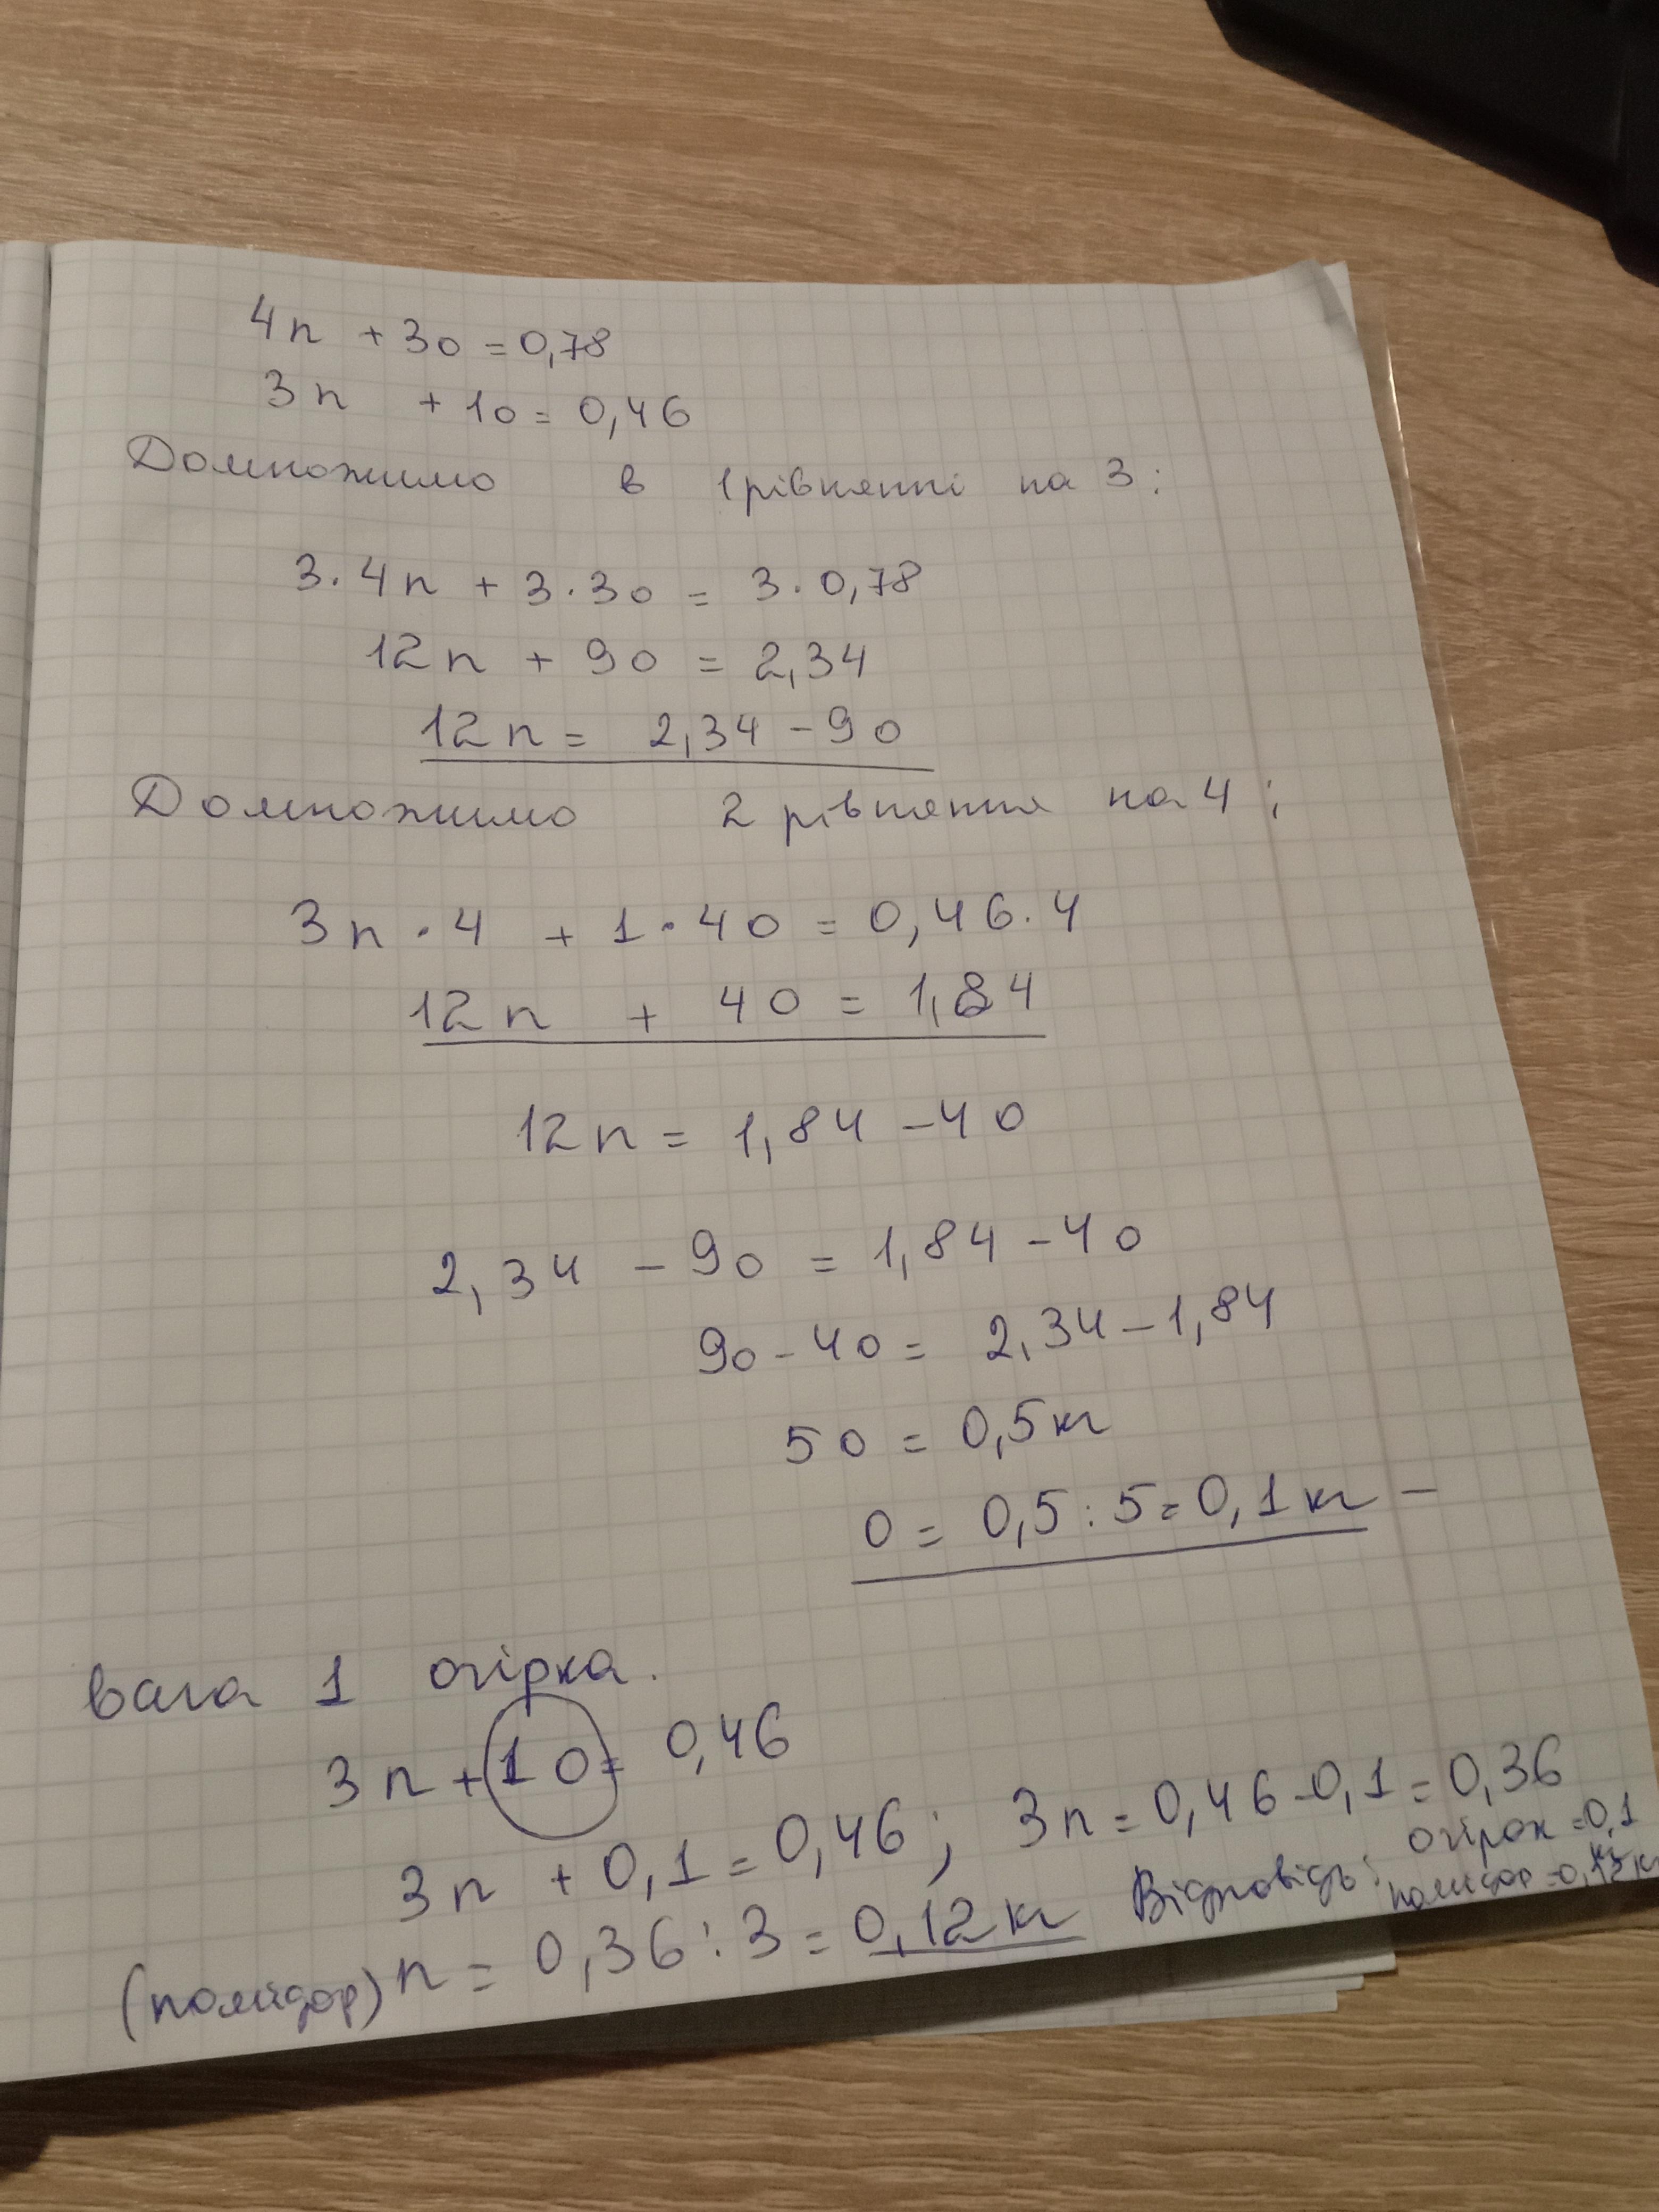 4п + 3о = 0,78
3п + 1о = 0,46
Домножимо в 1 рівнянні на 3:
3·4п + 3·3о = 3·0,78
12п + 9о = 2,34
12п = 2,34 - 9о
Домножимо 2 рівняння на 4;
3п·4 + 1·4о = 0,46·4
12п + 4о = 1,84
12п = 1,84 - 4о
2,34 - 9о = 1,84 - 4о
9о - 4о = 2,34 - 1,84
5о = 0,5кг
о = 0,5:5 = 0,1кг –
вага 1 огірка.
3п + 1о = 0,46
3п + 0,1 = 0,46; 3п = 0,46 - 0,1 = 0,36
(помідор) п = 0,36:3 = 0,12кг Відповідь: огірок = 0,1
помідор = 0,12кг